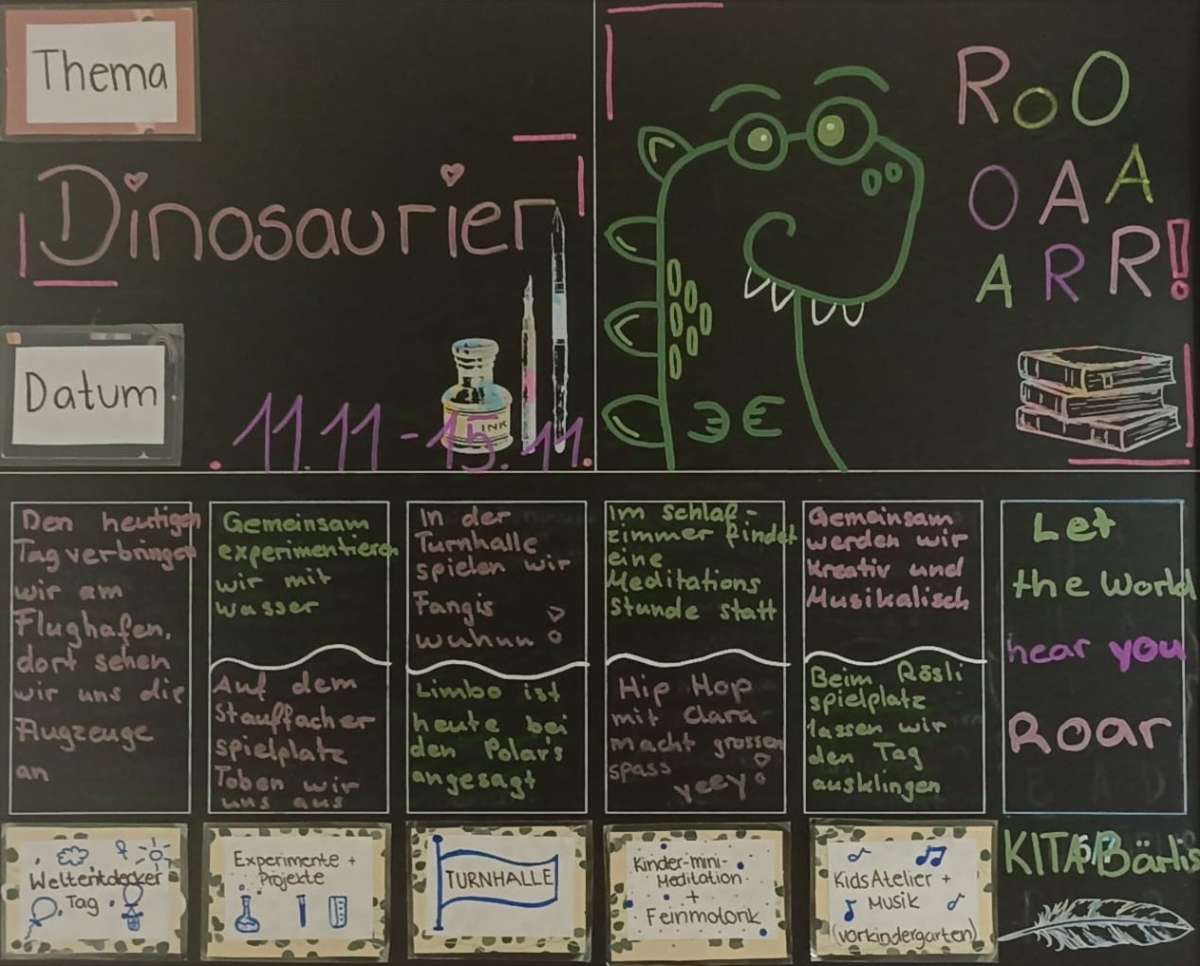 Thema
Dinosaurier
Datum
11.11-15.11.
INK
RoO
OAA
ARR!
Den heutigen
Tag verbringen
wir am
Flughafen,
dort sehen
wir uns die
Flugzeuge
an
Gemeinsam
experimentieren
wir mit
wasser
Auf dem
Stauffacher
spielplatz
Toben wir
uns aus
In der
Turnhalle
spielen wir
Fangis
wuhuu!
Limbo ist
heute bei
den Polar's
angesagt
Im schlaf-
zimmer findet
eine
Meditations
Stunde statt
Hip Hop
mit Clara
macht grossen
spass
yeey!
Gemeinsam
werden wir
kreativ und
Musikalisch
Beim Rösli
spielplatz
lassen wir
den Tag
ausklingen
Let
the World
hear you
Roar
Weltentdecker
Tag
Experimente +
Projekte
TURNHALLE
Kinder-mini-
Meditation
+
Feinmotorik
Kids Atelier +
Musik
(Vorkindergarten)
KITA Bärlis